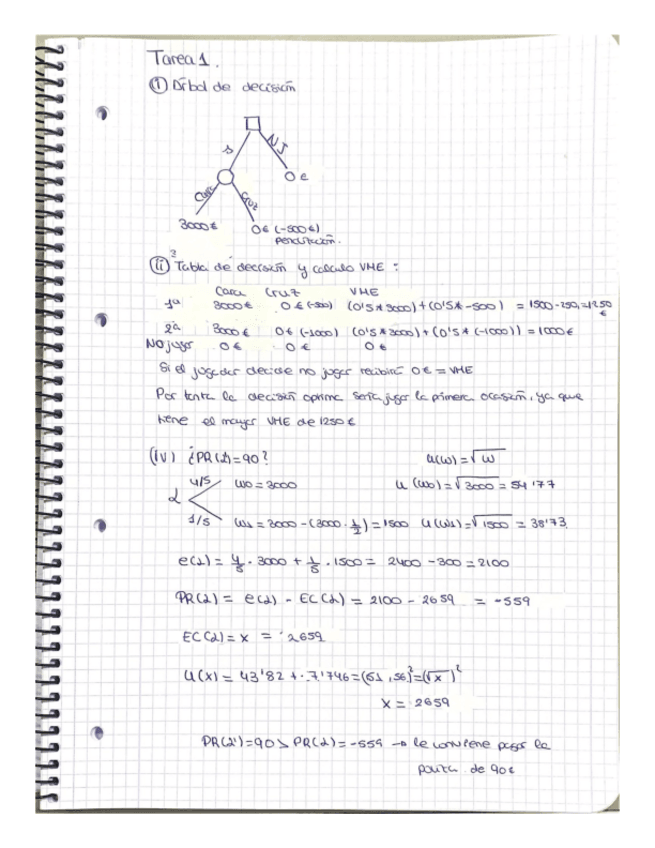 Tarea 1.
(i) Árbol de decisión
J
NJ
0 €
Cara
Cruz
3000 €
0 € (-500 €)
penalización.
(ii) Tabla de decisión y calculo VME :
Cara Cruz VME
1ª 3000 € 0 € (-500) (0'5 * 3000) + (0'5 * -500) = 1500 - 250 = 1250 €
2ª 3000 € 0 € (-1000) (0'5 * 3000) + (0'5 * (-1000)) = 1000 €
No jugar 0 € 0 € 0 €
Si el jugador decide no jugar recibirá 0 € = VME
Por tanto la decisión optima sería jugar la primera ocasión, ya que
tiene el mayor VME de 1250 €
(iv) ¿PR(L)=90? u(w) = √w
4/5 w0 = 3000 u (w0) = √3000 = 54'77
L
1/5 w1 = 3000 - (3000 · 1/2) = 1500 u(w1) = √1500 = 38'73
e(L) = 4/5 · 3000 + 1/5 · 1500 = 2400 - 300 = 2100
PR(L) = e(L) - EC(L) = 2100 - 2659 = -559
EC(L) = x = 2659
u(x) = 43'82 + 7'746 = (51,56)² = (√x)²
x = 2659
PR(L')=90 > PR(L) = -559 → le conviene pagar la
poliza de 90 €